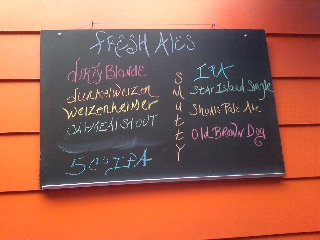 Fresh Ales
Dirty Blonde
Dunkelweizen
Weizenheimer
Oatmeal Stout
SMUTTY
IPA
Star Island Single
Shoals Pale Ale
Old Brown Dog